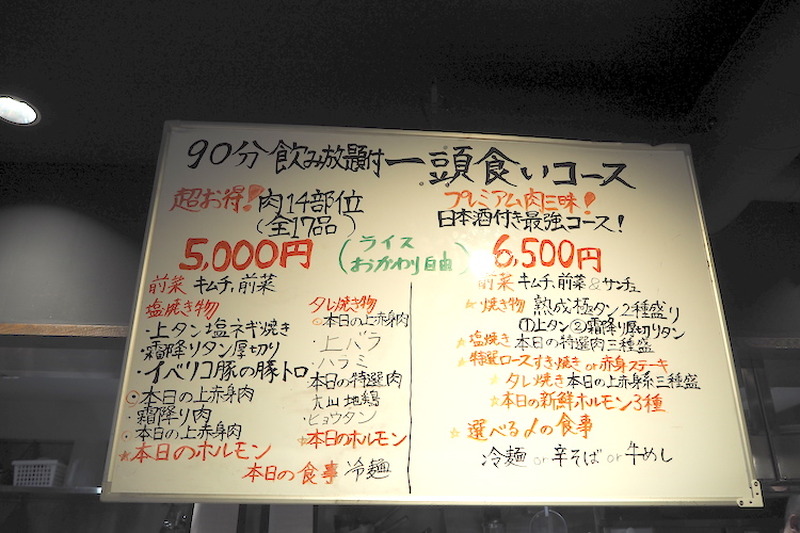 90分 飲み放題付 一頭食いコース
超お得! 肉14部位
(全17品)
5,000円
(ライス
おかわり自由)
前菜 キムチ, 前菜
塩焼き物
・上タン塩ネギ焼き
・霜降りタン厚切り
・イベリコ豚の豚トロ
本日の上赤身肉
・霜降り肉
本日の上赤身肉
☆本日のホルモン
タレ焼き物
本日の上赤身肉
・上バラ
・ハラミ
・本日の特選肉
大山地鶏
・ヒョウタン
☆本日のホルモン
本日の食事 冷麺
プレミアム肉三昧!
日本酒付き最強コース!
6,500円
前菜 キムチ, 前菜&サンチュ
☆焼き物 熟成極タン2種盛り
①上タン②霜降り厚切りタン
☆塩焼き 本日の特選肉三種盛
☆特選ロースすき焼き or 赤身ステーキ
☆タレ焼き 本日の上赤身系三種盛
☆本日の新鮮ホルモン3種
☆選べる〆の食事
冷麺 or 辛そば or 牛めし